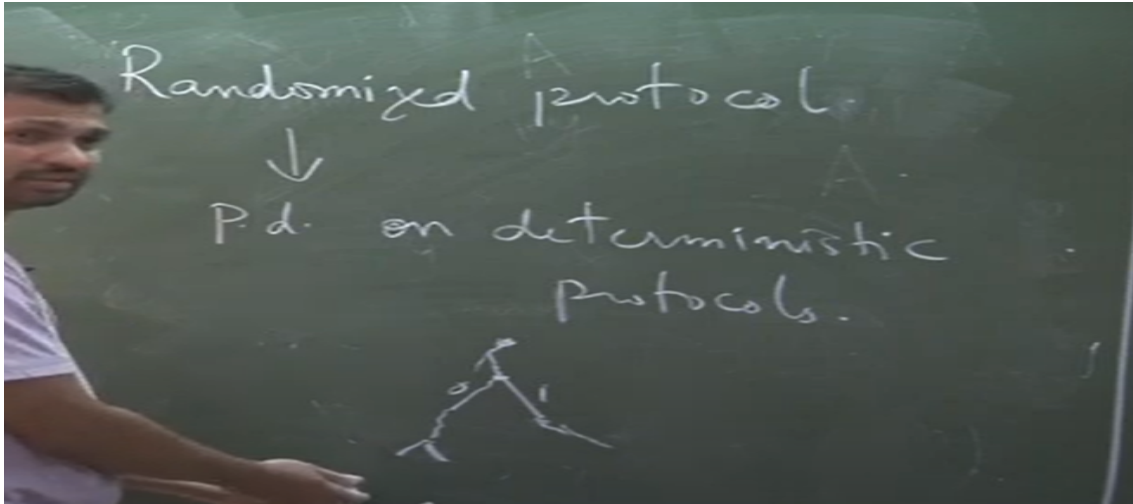 Randomized protocol.
P.d. on deterministic
protocols.
0 1